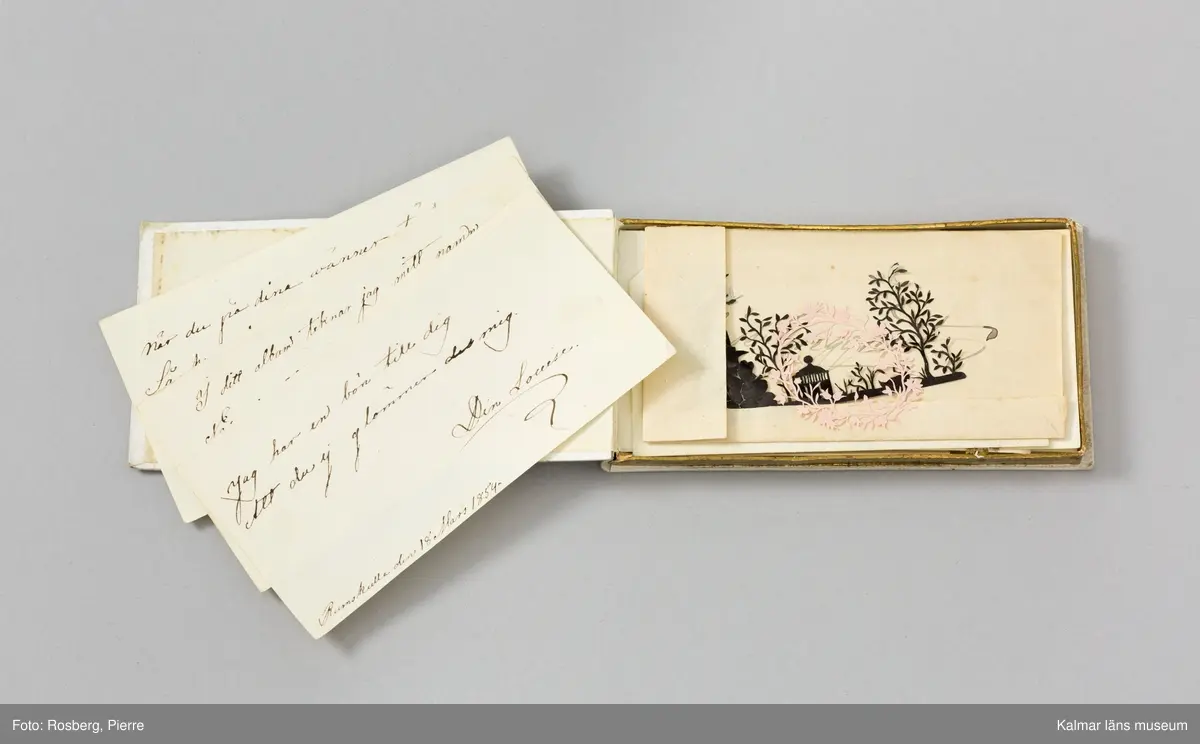 När du på dina wänner t
Så
I ditt album teknar jag mitt namn
Jag har en bön till dig
Att du ej glömmer mig.
Din Louise.
Rumskulla den 18 Mars 1854.
Foto: Rosberg, Pierre
Kalmar läns museum